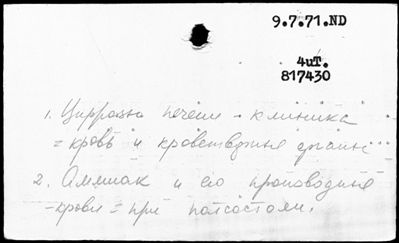 9.7.71.ND
4uT.
817430
1. Циррозы печени - клиника
= кровь и кроветворные органы
2. Аммиак и его производные
- крови = при патсостоян.